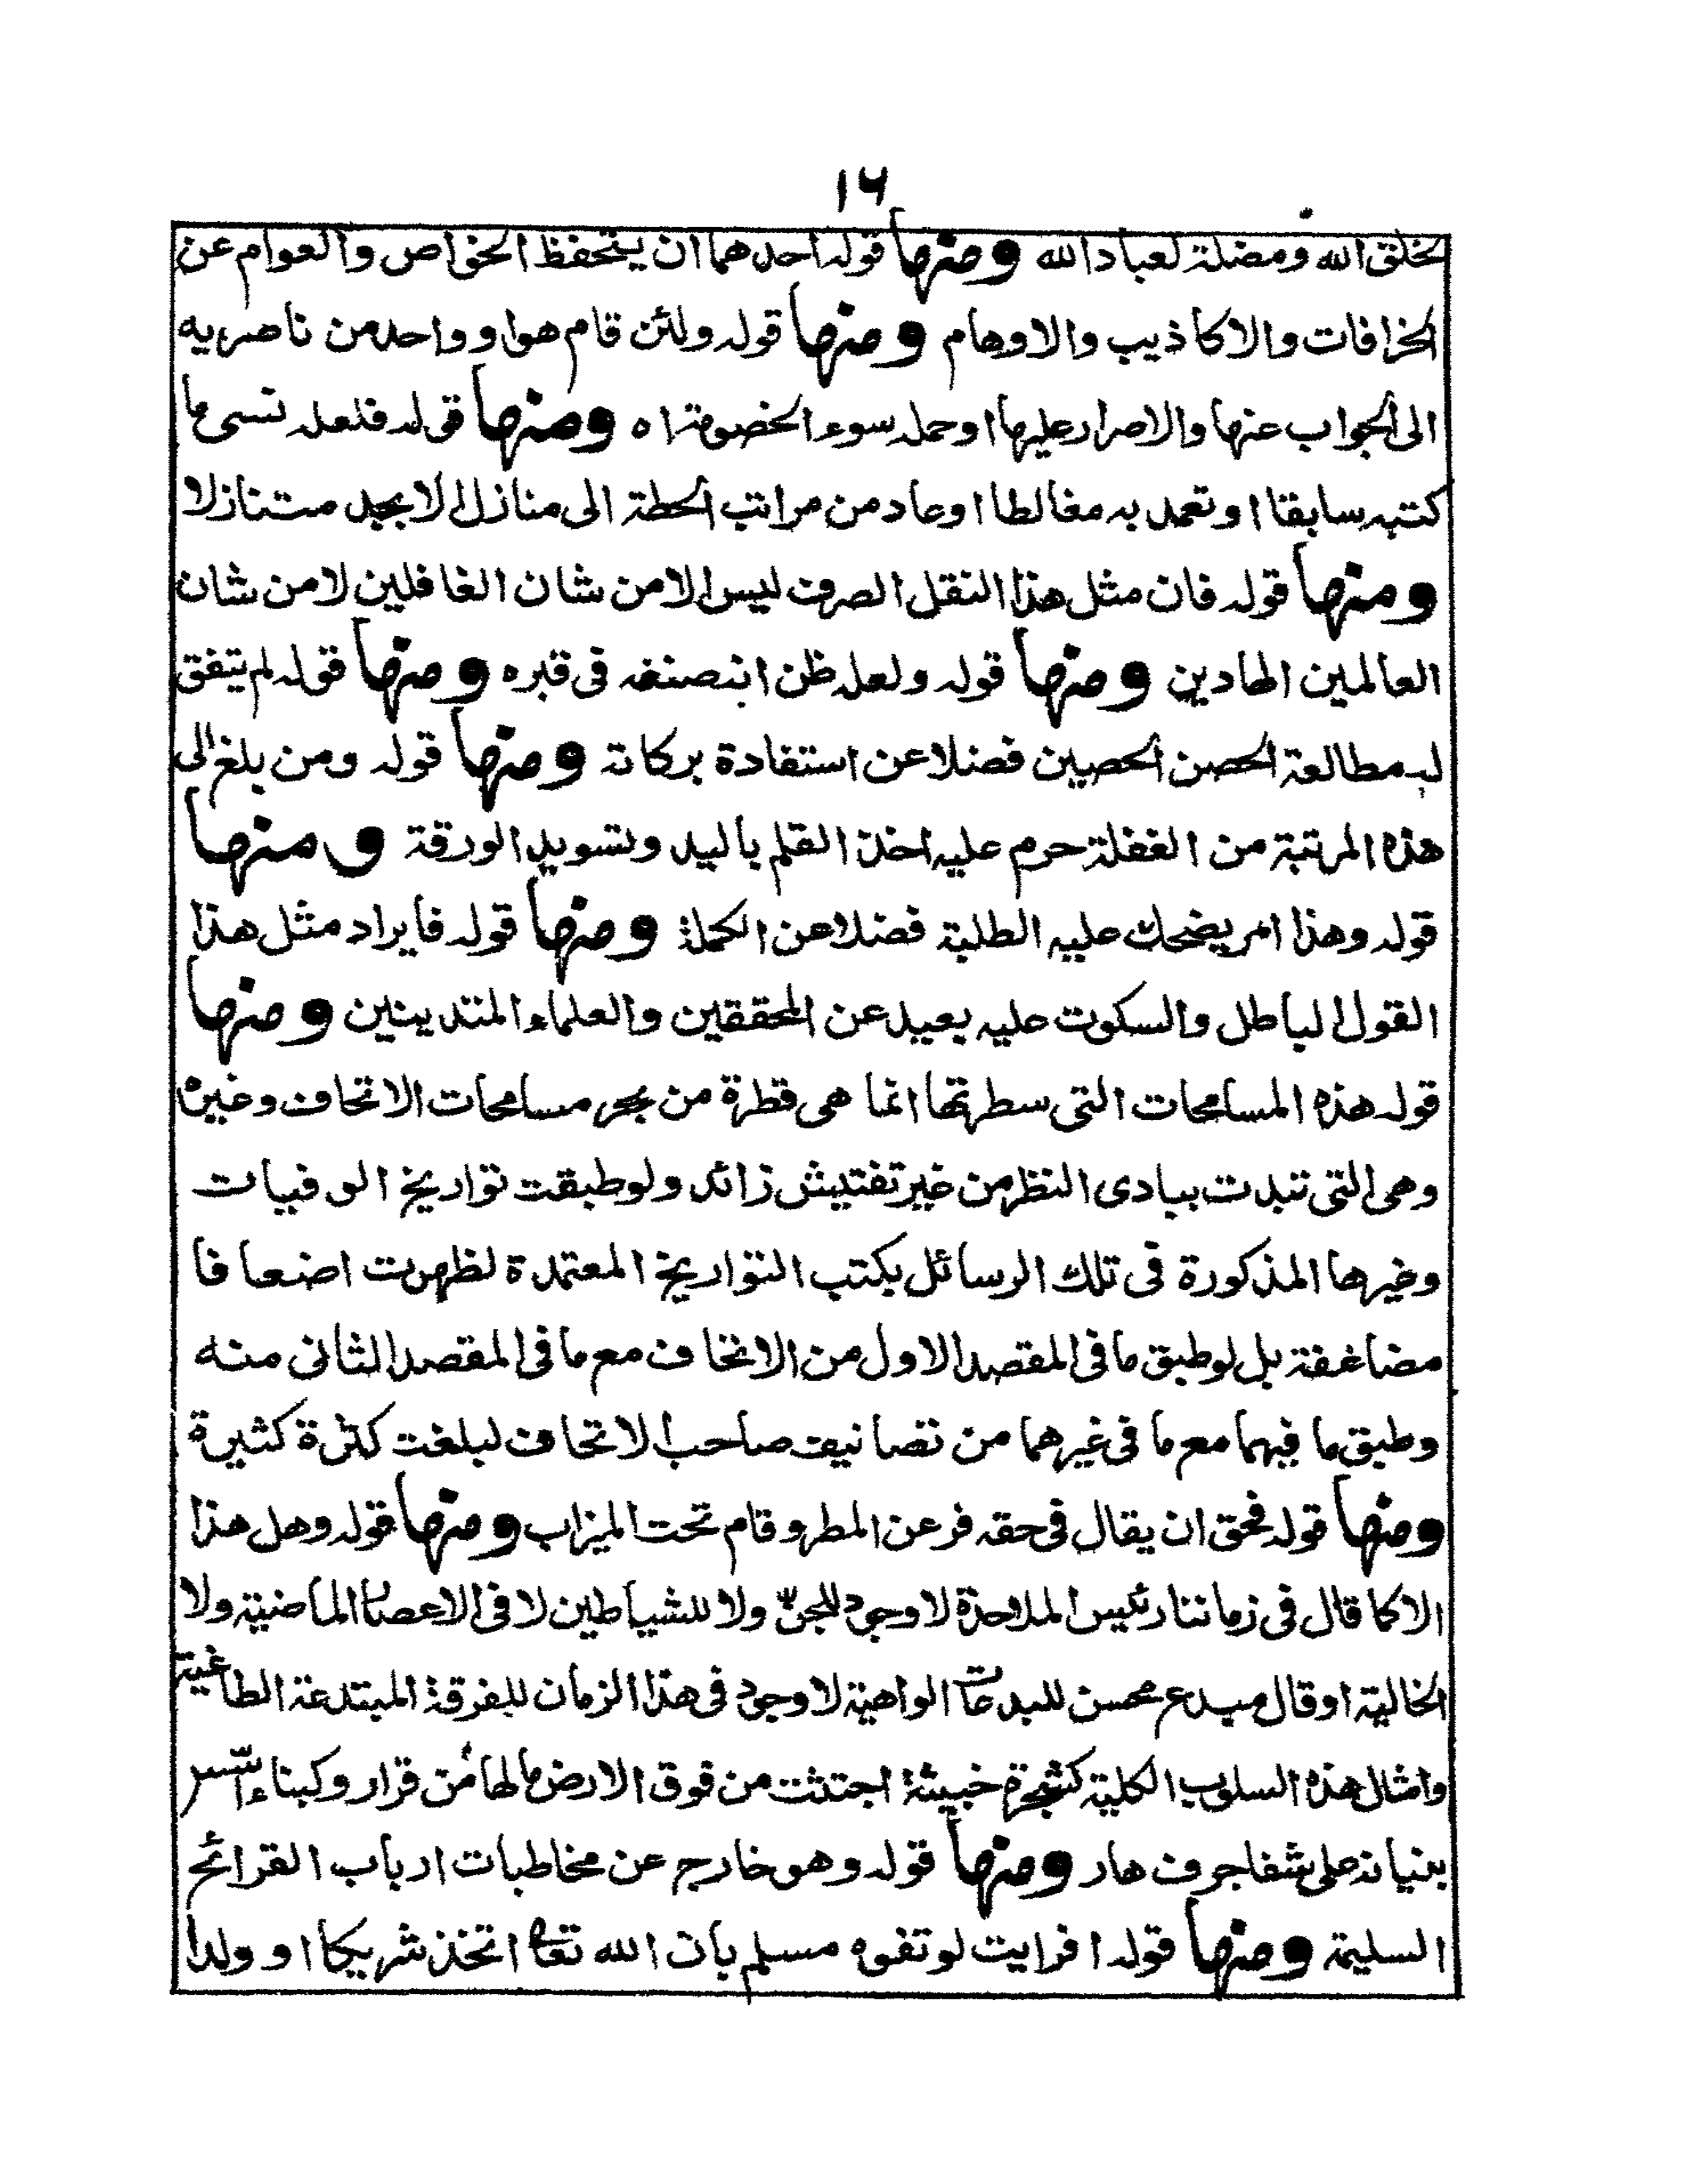 ١٦
لخلق الله ومضلة لعباد الله ومنها قوله احدهما ان يتحفظ الخواص والعوام عن
الخرافات والاكاذيب والاوهام ومنها قوله ولئن قام هوا وواحد من ناصريه
الى الجواب عنها والاصرار عليها او حمله سوء الخصومة اه ومنها قوله فلعله نسى ما
كتبه سابقا او تعمد به مغالطا او عاد من مراتب الحطة الى منازل الابجد متنازلا
ومنها قوله فان مثل هذا النقل الصرف ليس الا من شان الغافلين لا من شان
العالمين الهادين ومنها قوله ولعله ظن انه صنفه فى قبره ومنها قوله لم يتفق
له مطالعة الحصن الحصين فضلا عن استفادة بركاته ومنها قوله ومن بلغ الى
هذه المرتبة من الغفلة حرم عليه اخذ القلم باليد وتسويد الورقة ومنها
قوله وهذا امر يضحك عليه الطلبة فضلا عن الكملة ومنها قوله فايراد مثل هذا
القول الباطل والسكوت عليه بعيد عن المحققين والعلماء المتدينين ومنها
قوله هذه المسامحات التى سطرتها انما هى قطرة من بحر مسامحات الاتحاف وغيره
وهى التى تبدت ببادى النظر من غير تفتيش زائد ولو طبقت تواريخ الوفيات
وغيرها المذكورة فى تلك الرسائل بكتب التواريخ المعتمدة لظهرت اضعافا
مضاعفة بل لو طبق ما فى المقصد الاول من الاتحاف مع ما فى المقصد الثانى منه
وطبق ما فيهما مع ما فى غيرهما من تصانيف صاحب الاتحاف لبلغت كثرة كثيرة
ومنها قوله فحق ان يقال فى حقه فر عن المطر وقام تحت الميزاب ومنها قوله وهل هذا
الا كما قال فى زماننا رئيس الملاحدة لا وجود للجن ولا للشياطين لا فى الاعصار الماضية ولا
الخالية او قال مبدع محسن للبدعات الواهية لا وجود فى هذا الزمان للفرقة المبتدعة الطاغية
وامثال هذه السلوب الكلية كشجرة خبيثة اجتثت من فوق الارض ما لها من قرار وكبناء اسس
بنيانه على شفا جرف هار ومنها قوله وهو خارج عن مخاطبات ارباب القرائح
السليمة ومنها قوله افرايت لو تفوه مسلم بان الله تعا اتخذ شريكا او ولدا